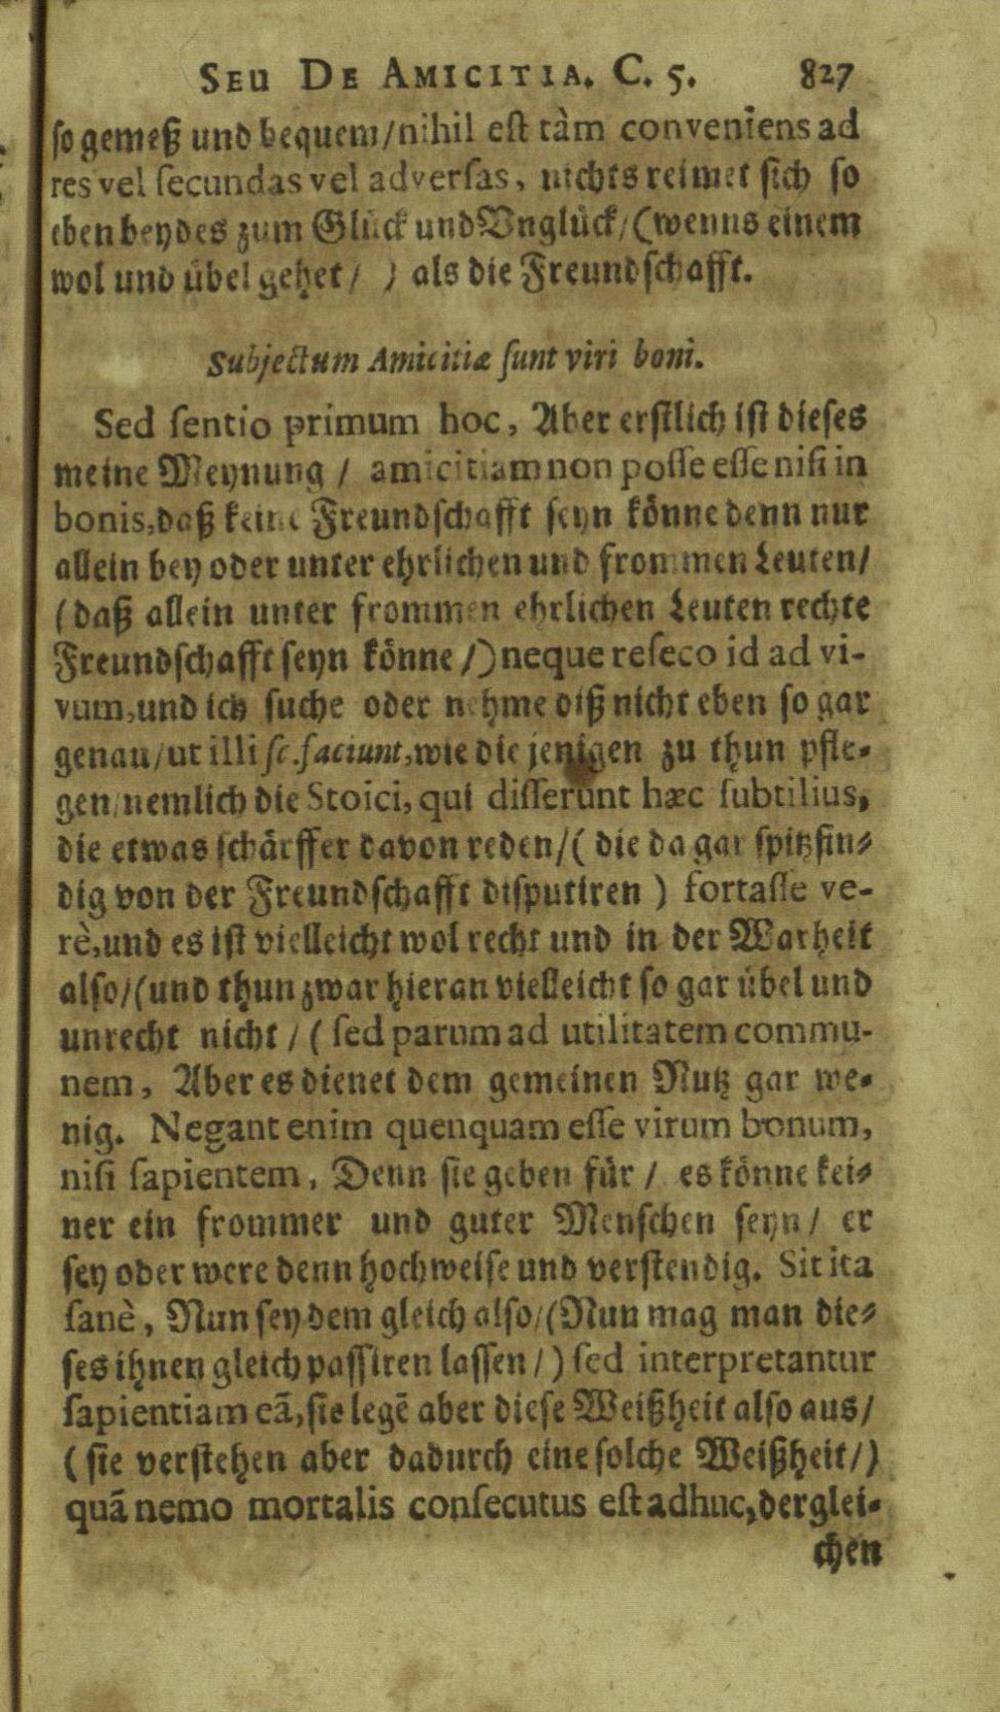 SEU DE AMICITIA. C. 5. 827
so gemeß und bequem/nihil est tàm conveniens ad
res vel secundas vel adversas, nichts reimet sich so
eben beydes zum Glück und Vnglück/(wenns einem
wol und übel gehet/ ) als die Freundschafft.
Subjectum Amicitiæ sunt viri boni.
Sed sentio primum hoc, Aber erstlich ist dieses
meine Meynung / amicitiam non posse esse nisi in
bonis,daß keine Freundschafft seyn könne denn nur
allein bey oder unter ehrlichen und frommen Leuten/
(daß allein unter frommen ehrlichen Leuten rechte
Freundschafft seyn könne/) neque reseco id ad vi-
vum,und ich suche oder nehme diß nicht eben so gar
genau/ut illi sc. faciunt,wie die jenigen zu thun pfle-
gen/nemlich die Stoici, qui disserunt hæc subtilius,
die etwas schärffer davon reden/( die da gar spitzfin-
dig von der Freundschafft disputiren ) fortasse ve-
rè,und es ist vielleicht wol recht und in der Warheit
also/(und thun zwar hieran vielleicht so gar übel und
unrecht nicht / ( sed parum ad utilitatem commu-
nem, Aber es dienet dem gemeinen Nutz gar we-
nig. Negant enim quenquam esse virum bonum,
nisi sapientem, Denn sie geben für / es könne kei-
ner ein frommer und guter Menschen seyn/ er
sey oder were denn hochweise und verstendig. Sit ita
sanè, Nun sey dem gleich also/(Nun mag man die-
ses ihnen gleich passiren lassen/) sed interpretantur
sapientiam eã,sie legẽ aber diese Weißheit also aus/
(sie verstehen aber dadurch eine solche Weißheit/)
quã nemo mortalis consecutus est adhuc,derglei-
chen